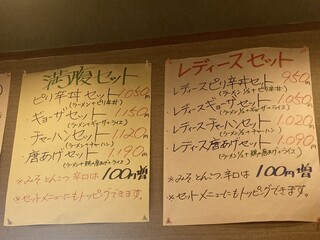 満腹セット
ピリ辛丼セット 1,050円
(ラーメン+ピリ辛丼)
ギョーザセット 1,150円
(ラーメン+ギョーザ+ライス)
チャーハンセット 1,120円
(ラーメン+チャーハン)
唐あげセット 1,190円
(ラーメン+鶏の唐あげ+ライス)
※みそ、とんこつ、辛口は100円増
※セットメニューにもトッピングできます。
レディースセット
レディースピリ辛丼セット 950円
(ラーメン1/2+ピリ辛丼)
レディースギョーザセット 1,050円
(ラーメン1/2+ギョーザ+ライス)
レディースチャーハンセット 1,020円
(ラーメン1/2+チャーハン)
レディース唐あげセット 1,090円
(ラーメン1/2+鶏の唐あげ+ライス)
※みそ、とんこつ、辛口は100円増
※セットメニューにもトッピングできます。